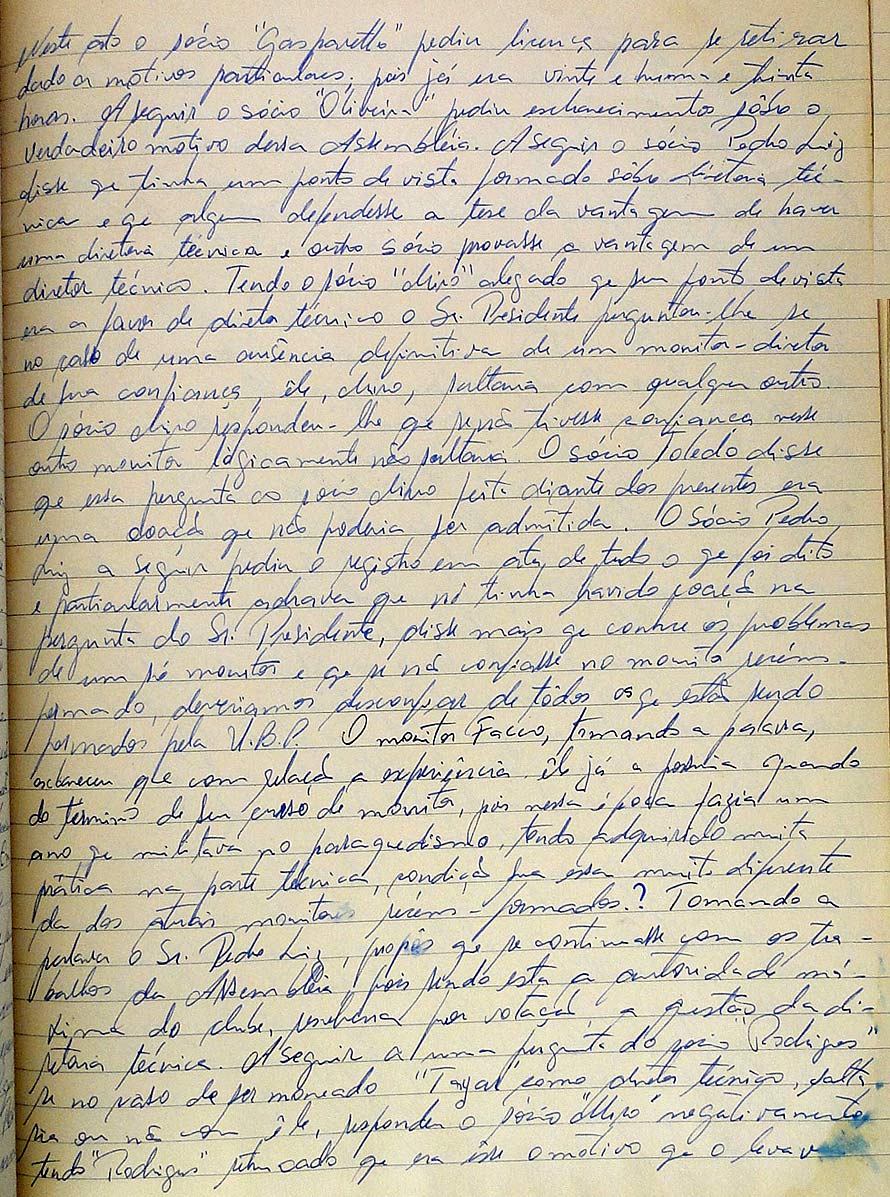 Neste ato o sócio "Gasparetto" pediu licença para se retirar
dado os motivos particulares, pois já era vinte e huma e trinta
horas. A seguir o sócio "Oliveira" pediu esclarecimentos sôbre o
verdadeiro motivo dessa Assembléia. A seguir o sócio Pedro Luiz
disse qe tinha um ponto de vista formado sôbre diretoria téc-
nica e qe alguem defendesse a tese da vantagem de haver
uma diretoria técnica e outro sócio provasse a vantagem de um
diretor técnico. Tendo o sócio alegado qe seu ponto de vista
era a favor de diretor técnico o Sr. Presidente perguntou-lhe se
no caso de uma ausência definitiva de um monitor-diretor
de sua confiança, êle, saltaria com qualquer outro.
O sócio respondeu-lhe que se não tivesse confiança nesse
outro monitor lógicamente não saltaria. O sócio Toledo disse
que essa pergunta ao sócio feita diante dos presentes era
uma coação que não poderia ser admitida. O Sócio Pedro
Luiz a seguir pediu o registro em ata, de tudo o qe foi dito
e particularmente achava que não tinha havido coação na
pergunta do Sr. Presidente, disse mais qe conhece os problemas
de um só monitor e qe se não confiasse no monitor recém-
formado, deveriamos desconfiar de todos os qe estão sendo
formados pela U.B.P. O monitor Facco, tomando a palavra,
esclareceu que com relação a experiência êle já a possuia quando
do término de seu curso de monitor, pois nessa época fazia um
ano qe militava no paraquedismo, tendo adquirido muita
prática na parte técnica, condição sua essa muito diferente
da dos atuais monitores recém-formados.? Tomando a
palavra o Sr. Pedro Luiz, propôs que se continuasse com os tra-
balhos da Assembléia, pois sendo esta a autoridade má-
xima do clube, resolveria por votação, a questão da di-
retoria técnica. A seguir a uma pergunta do sócio "Rodrigues"
se no caso de ser nomeado como diretor técnico, salta
ria ou não com êle, respondeu o sócio negativamente
tendo "Rodrigues" retrucado qe era êsse o motivo qe o levav